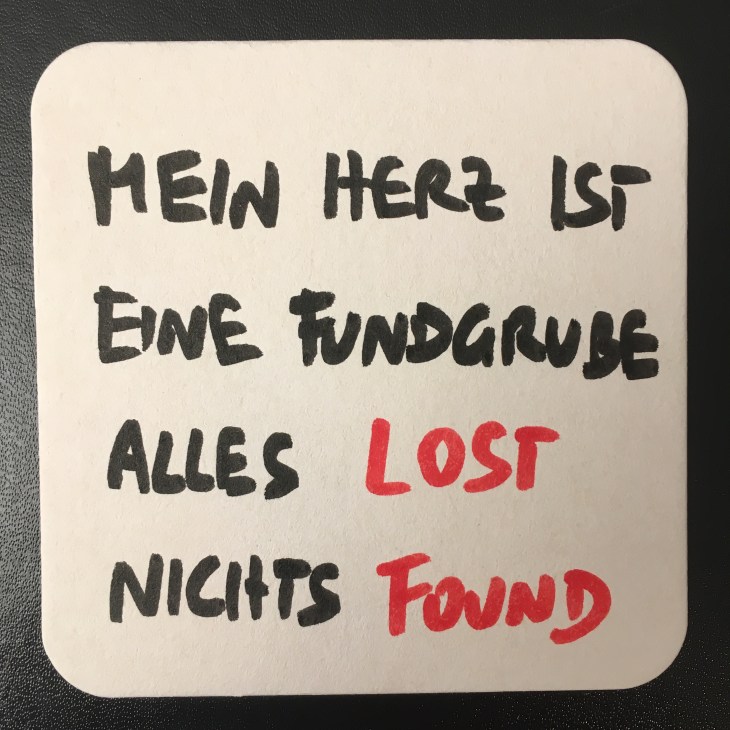 MEIN HERZ IST
EINE FUNDGRUBE
ALLES LOST
NICHTS FOUND